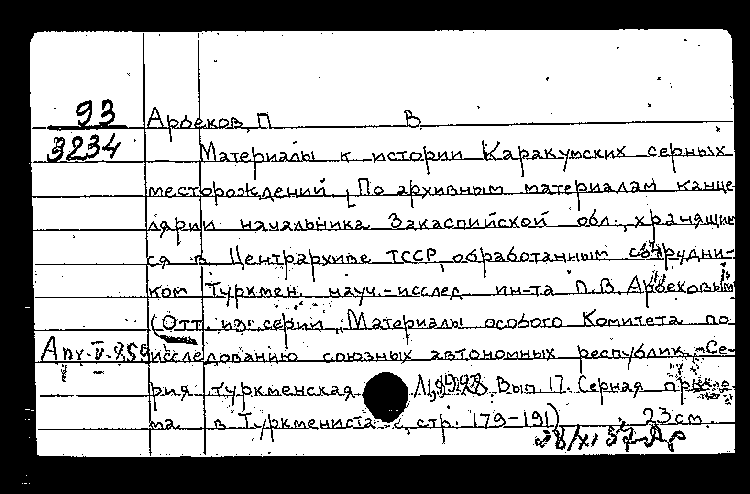 93
3234
Арбеков, П В
Материалы к истории Каракумских серных
месторождений, По архивным материалам канце-
лярии начальника Закаспийской обл., хранящим
ся в Центрархиве ТССР, обработанным сотрудни-
ком Туркмен. науч.-исслед. ин-та П.В. Арбековым
(Отт. из серии „Материалы особого Комитета по
исследованию союзных автономных республик. Се-
рия туркменская Вып. 17. Серная пробле-
ма в Туркменистане, стр. 179-191) 23 см.
28/XI